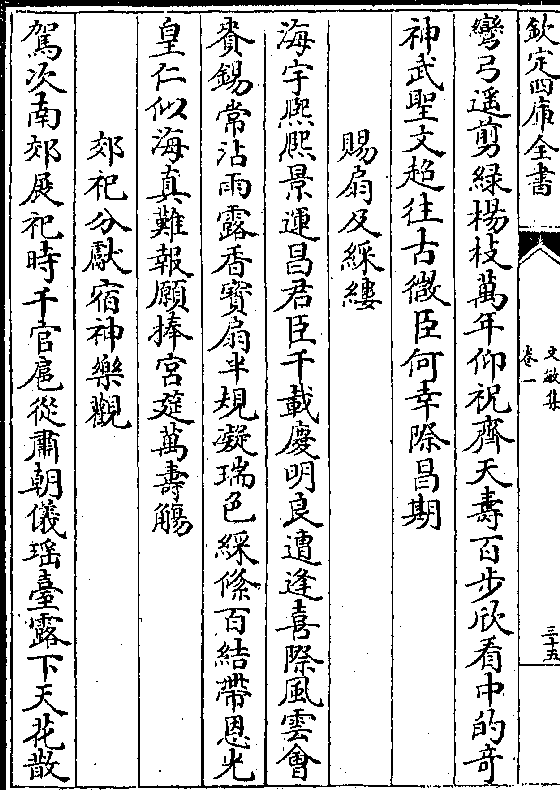 欽定四庫全書
文敏集
卷一
三十五
彎弓遥剪緑楊枝萬年仰祝齊天壽百步欣看中的竒
神武聖文超往古微臣何幸際昌期
賜扇及綵縷
海宇熈熈景運昌君臣千載慶明良遭逢喜際風雲會
賚錫常沾雨露香寳扇半規凝瑞色綵絛百結帶恩光
皇仁似海真難報願捧宮筵萬壽觴
郊祀分獻宿神樂觀
駕次南郊展祀時千官扈從肅朝儀瑶臺露下天花散